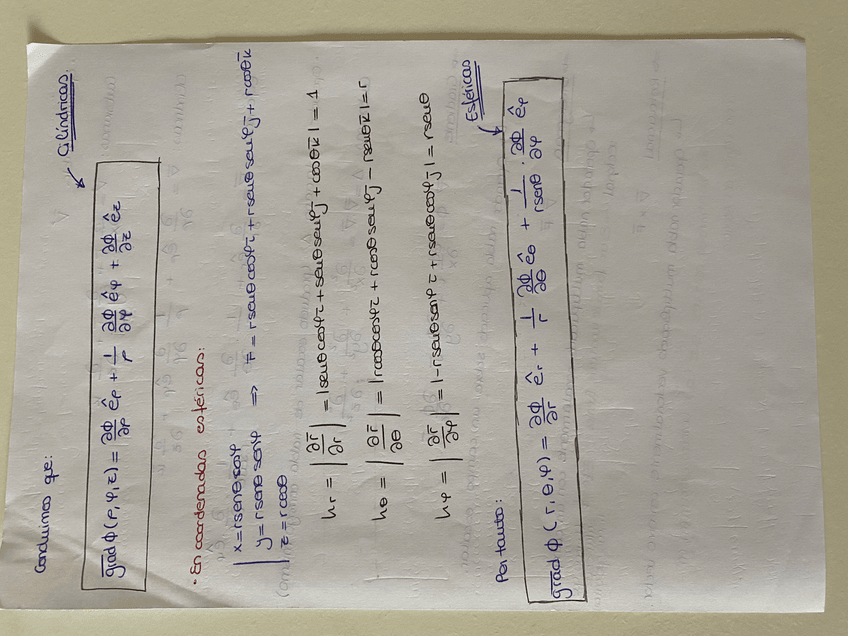 Concluimos que:
Cilíndricas.
grad ϕ (ρ,φ,z) = ∂ϕ/∂ρ ê_ρ + 1/ρ ∂ϕ/∂φ ê_φ + ∂ϕ/∂z ê_z
• En coordenadas esféricas:
x = r senθ cosφ
y = r senθ senφ ⇒ r̄ = r senθ cosφ ī + r senθ senφ j̄ + r cosθ k̄
z = r cosθ
h_r = |∂r̄/∂r| = |senθ cosφ ī + senθ senφ j̄ + cosθ k̄| = 1
h_θ = |∂r̄/∂θ| = |r cosθ cosφ ī + r cosθ senφ j̄ − r senθ k̄| = r
h_φ = |∂r̄/∂φ| = |−r senθ senφ ī + r senθ cosφ j̄| = r senθ
Por tanto:
Esféricas
grad ϕ (r,θ,φ) = ∂ϕ/∂r ê_r + 1/r ∂ϕ/∂θ ê_θ + 1/(r senθ) · ∂ϕ/∂φ ê_φ